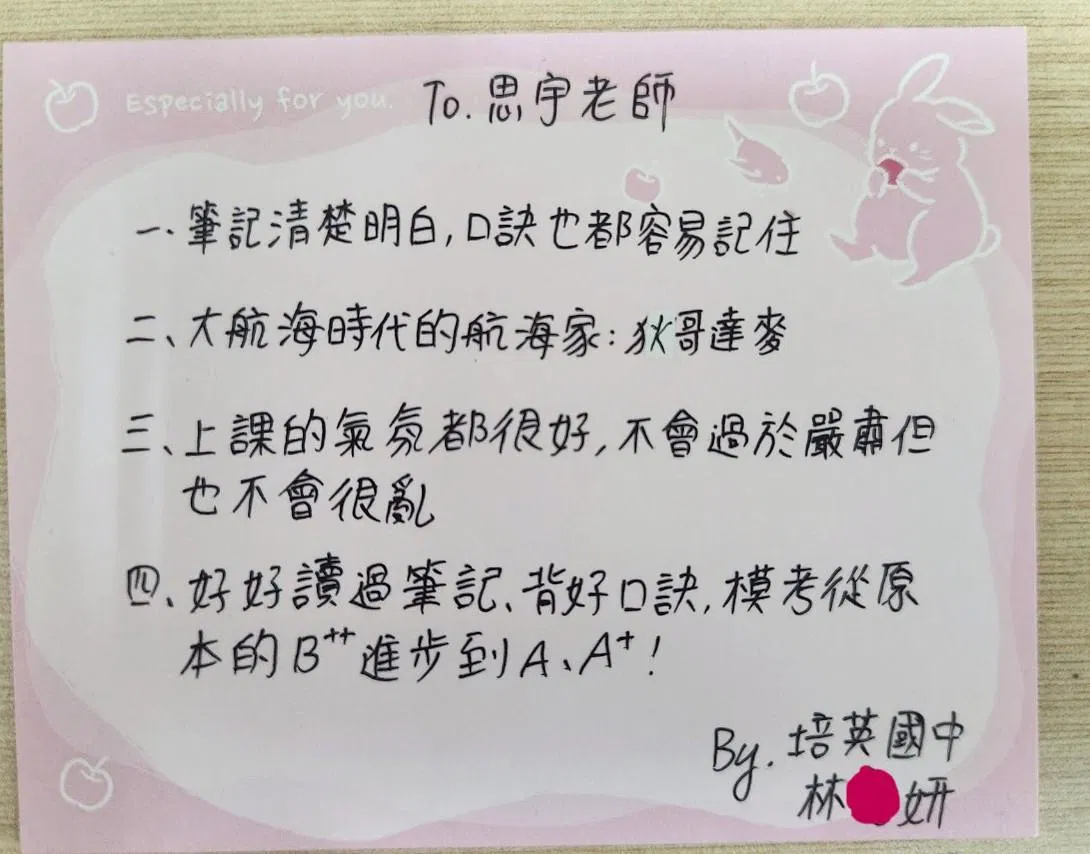 Especially for you.
To. 思宇老師
一. 筆記清楚明白, 口訣也都容易記住
二、大航海時代的航海家: 狄哥達麥
三、上課的氣氛都很好, 不會過於嚴肅但
也不會很亂
四、好好讀過筆記、背好口訣, 模考從原
本的B++進步到A、A+!
By. 培英國中
林 妍